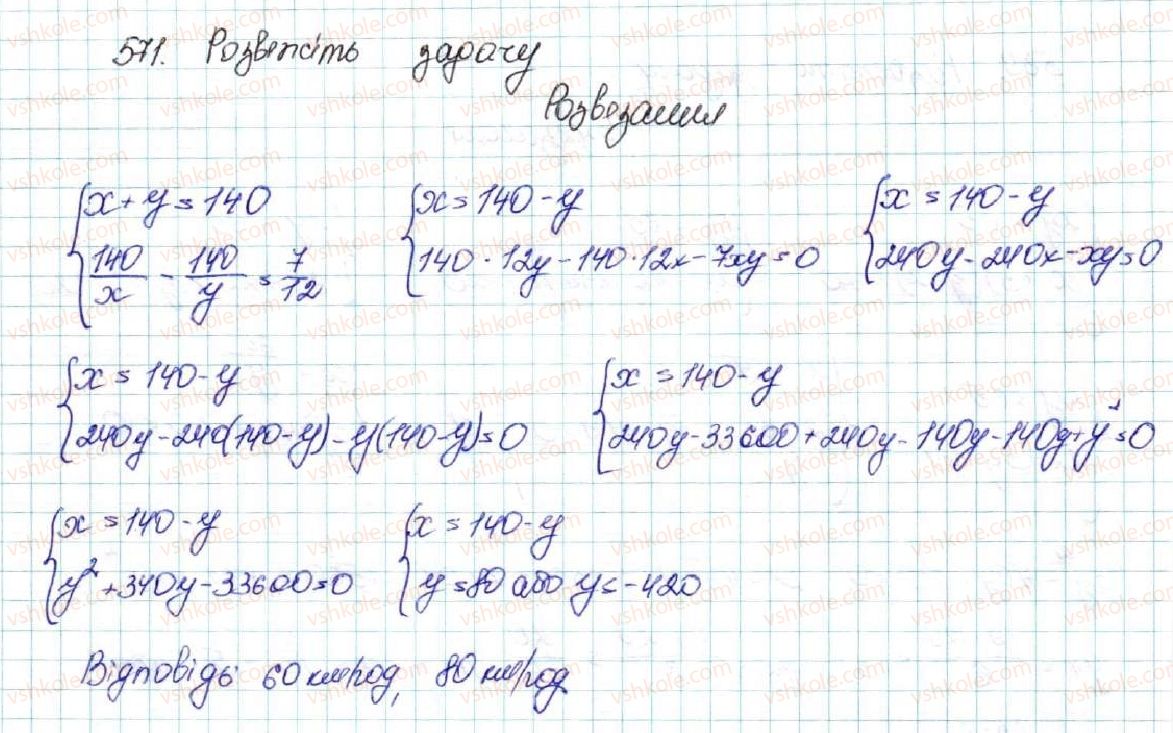 571. Розвяжіть задачу
Розвязання
{x + y = 140
140/x - 140/y = 7/12
{x = 140 - y
140 · 12y - 140 · 12x - 7xy = 0
{x = 140 - y
240y - 240x - xy = 0
{x = 140 - y
240y - 240(140 - y) - y(140 - y) = 0
{x = 140 - y
240y - 33600 + 240y - 140y - 140y + y² = 0
{x = 140 - y
y² + 340y - 33600 = 0
{x = 140 - y
y = 80 або y = -420
Відповідь: 60 км/год, 80 км/год
vshkole.com